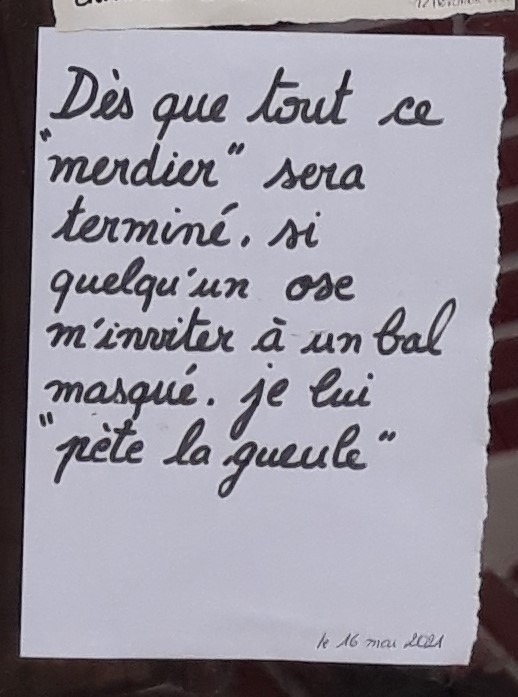 Dès que tout ce
"merdier" sera
terminé. si
quelqu'un ose
m'inviter à un bal
masqué. je lui
"pète la gueule"
le 16 mai 2021